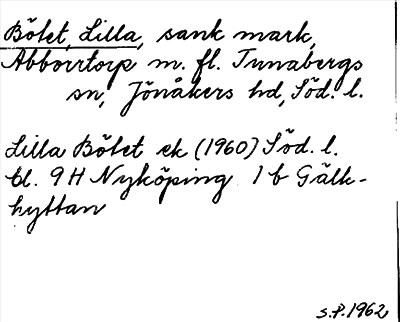 Bötet, Lilla, sank mark,
Abborrtorp m. fl. Tunabergs
sn, Jönåkers hd, Söd. l.
Lilla Bötet ek (1960) Söd. l.
bl. 9H Nyköping 1 b Gälk-
hyttan
S.P. 1962